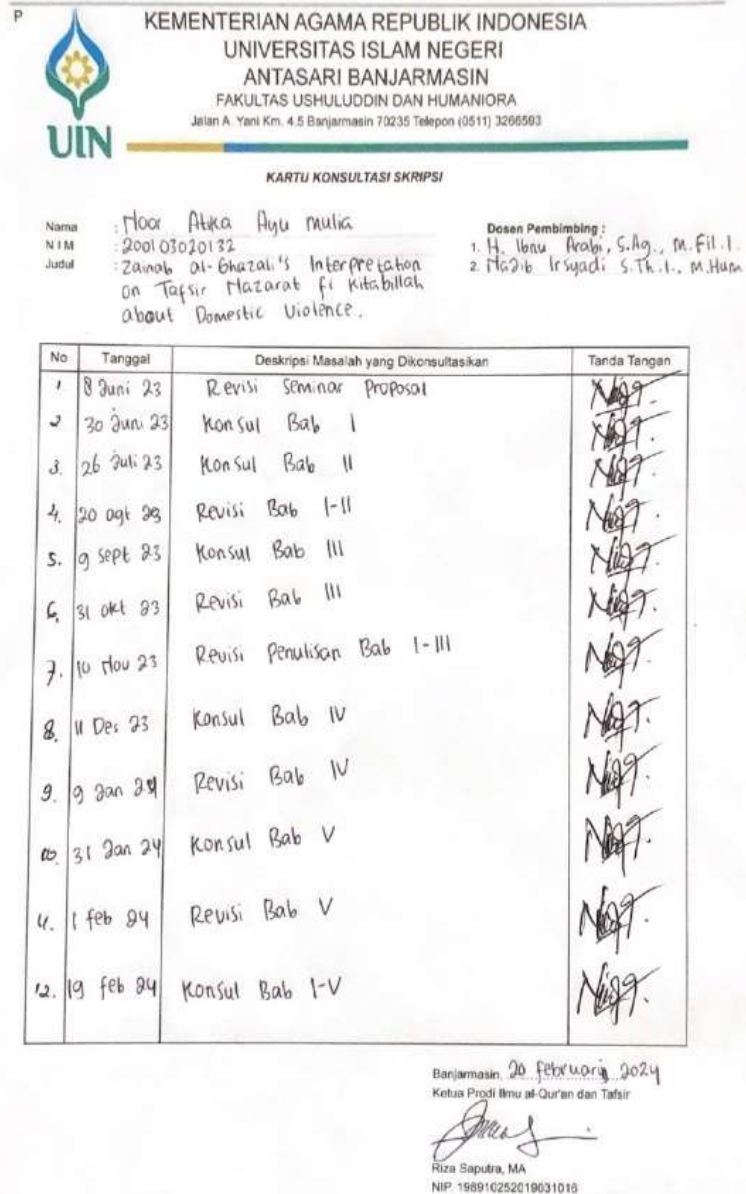 P
KEMENTERIAN AGAMA REPUBLIK INDONESIA
UNIVERSITAS ISLAM NEGERI
ANTASARI BANJARMASIN
FAKULTAS USHULUDDIN DAN HUMANIORA
Jalan A. Yani Km. 4.5 Banjarmasin 70235 Telepon (0511) 3266593
UIN
KARTU KONSULTASI SKRIPSI
Nama : Noor Atika Ayu Mulia
NIM : 200103020132
Judul : Zainab al-Ghazali's Interpretation
on Tafsir Nazarat fi Kitabillah
about Domestic Violence.
Dosen Pembimbing :
1. H. Ibnu Arabi, S.Ag., M.Fil.I.
2. Najib Irsyadi S.Th.I., M.Hum
No Tanggal Deskripsi Masalah yang Dikonsultasikan Tanda Tangan
1 8 Juni 23 Revisi Seminar Proposal
2 30 Juni 23 Konsul Bab I
3. 26 Juli 23 Konsul Bab II
4. 20 agt 23 Revisi Bab I-II
5. 9 sept 23 Konsul Bab III
6. 31 okt 23 Revisi Bab III
7. 10 Nov 23 Revisi Penulisan Bab I-III
8. 11 Des 23 Konsul Bab IV
9. 9 Jan 24 Revisi Bab IV
10. 31 Jan 24 Konsul Bab V
11. 1 feb 24 Revisi Bab V
12. 19 feb 24 Konsul Bab I-V
Banjarmasin, 20 februari 2024
Ketua Prodi Ilmu al-Qur'an dan Tafsir
Riza Saputra, MA
NIP. 198910252019031016